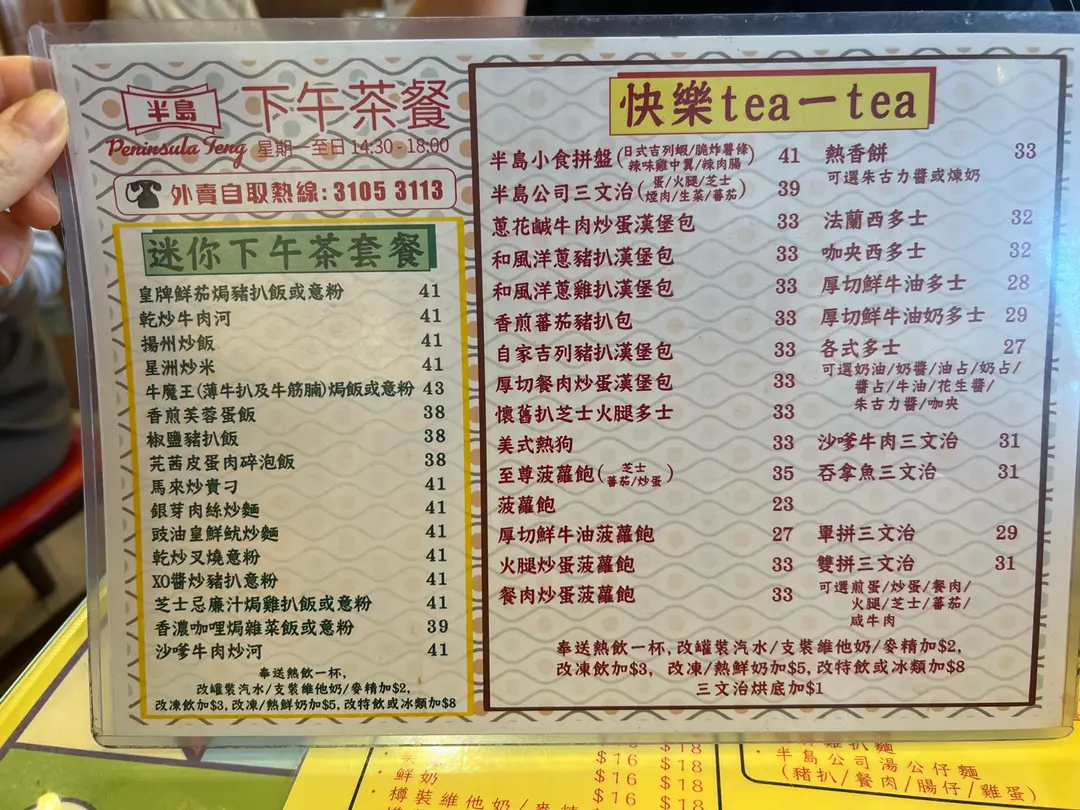 半島
Peninsula Teng
下午茶餐
星期一至日 14:30 - 18:00
外賣自取熱線: 3105 3113
迷你下午茶套餐
皇牌鮮茄焗豬扒飯或意粉 41
乾炒牛肉河 41
揚州炒飯 41
星洲炒米 41
牛魔王(薄牛扒及牛筋腩)焗飯或意粉 43
香煎芙蓉蛋飯 38
椒鹽豬扒飯 38
芫茜皮蛋肉碎泡飯 38
馬來炒貴刁 41
銀芽肉絲炒麵 41
豉油皇鮮魷炒麵 41
乾炒叉燒意粉 41
XO醬炒豬扒意粉 41
芝士忌廉汁焗雞扒飯或意粉 41
香濃咖哩焗雜菜飯或意粉 39
沙嗲牛肉炒河 41
奉送熱飲一杯,
改罐裝汽水/支裝維他奶/麥精加$2,
改凍飲加$3, 改凍/熱鮮奶加$5, 改特飲或冰類加$8
快樂tea一tea
半島小食拼盤(日式吉列蝦/脆炸薯條
辣味雞中翼/辣肉腸) 41
半島公司三文治(蛋/火腿/芝士
煙肉/生菜/蕃茄) 39
蔥花鹹牛肉炒蛋漢堡包 33
和風洋蔥豬扒漢堡包 33
和風洋蔥雞扒漢堡包 33
香煎蕃茄豬扒包 33
自家吉列豬扒漢堡包 33
厚切餐肉炒蛋漢堡包 33
懷舊扒芝士火腿多士 33
美式熱狗 33
至尊菠蘿飽(芝士
蕃茄/炒蛋) 35
菠蘿飽 23
厚切鮮牛油菠蘿飽 27
火腿炒蛋菠蘿飽 33
餐肉炒蛋菠蘿飽 33
熱香餅 33
可選朱古力醬或煉奶
法蘭西多士 32
咖央西多士 32
厚切鮮牛油多士 28
厚切鮮牛油奶多士 29
各式多士 27
可選奶油/奶醬/油占/奶占/
醬占/牛油/花生醬/
朱古力醬/咖央
沙嗲牛肉三文治 31
吞拿魚三文治 31
單拼三文治 29
雙拼三文治 31
可選煎蛋/炒蛋/餐肉/
火腿/芝士/蕃茄/
咸牛肉
奉送熱飲一杯, 改罐裝汽水/支裝維他奶/麥精加$2,
改凍飲加$3, 改凍/熱鮮奶加$5, 改特飲或冰類加$8
三文治烘底加$1
$16 $18
・鮮奶 $16 $18
・樽裝維他奶/麥精 $16 $18
雞扒麵
・半島公司湯公仔麵
(豬扒/餐肉/腸仔/雞蛋)